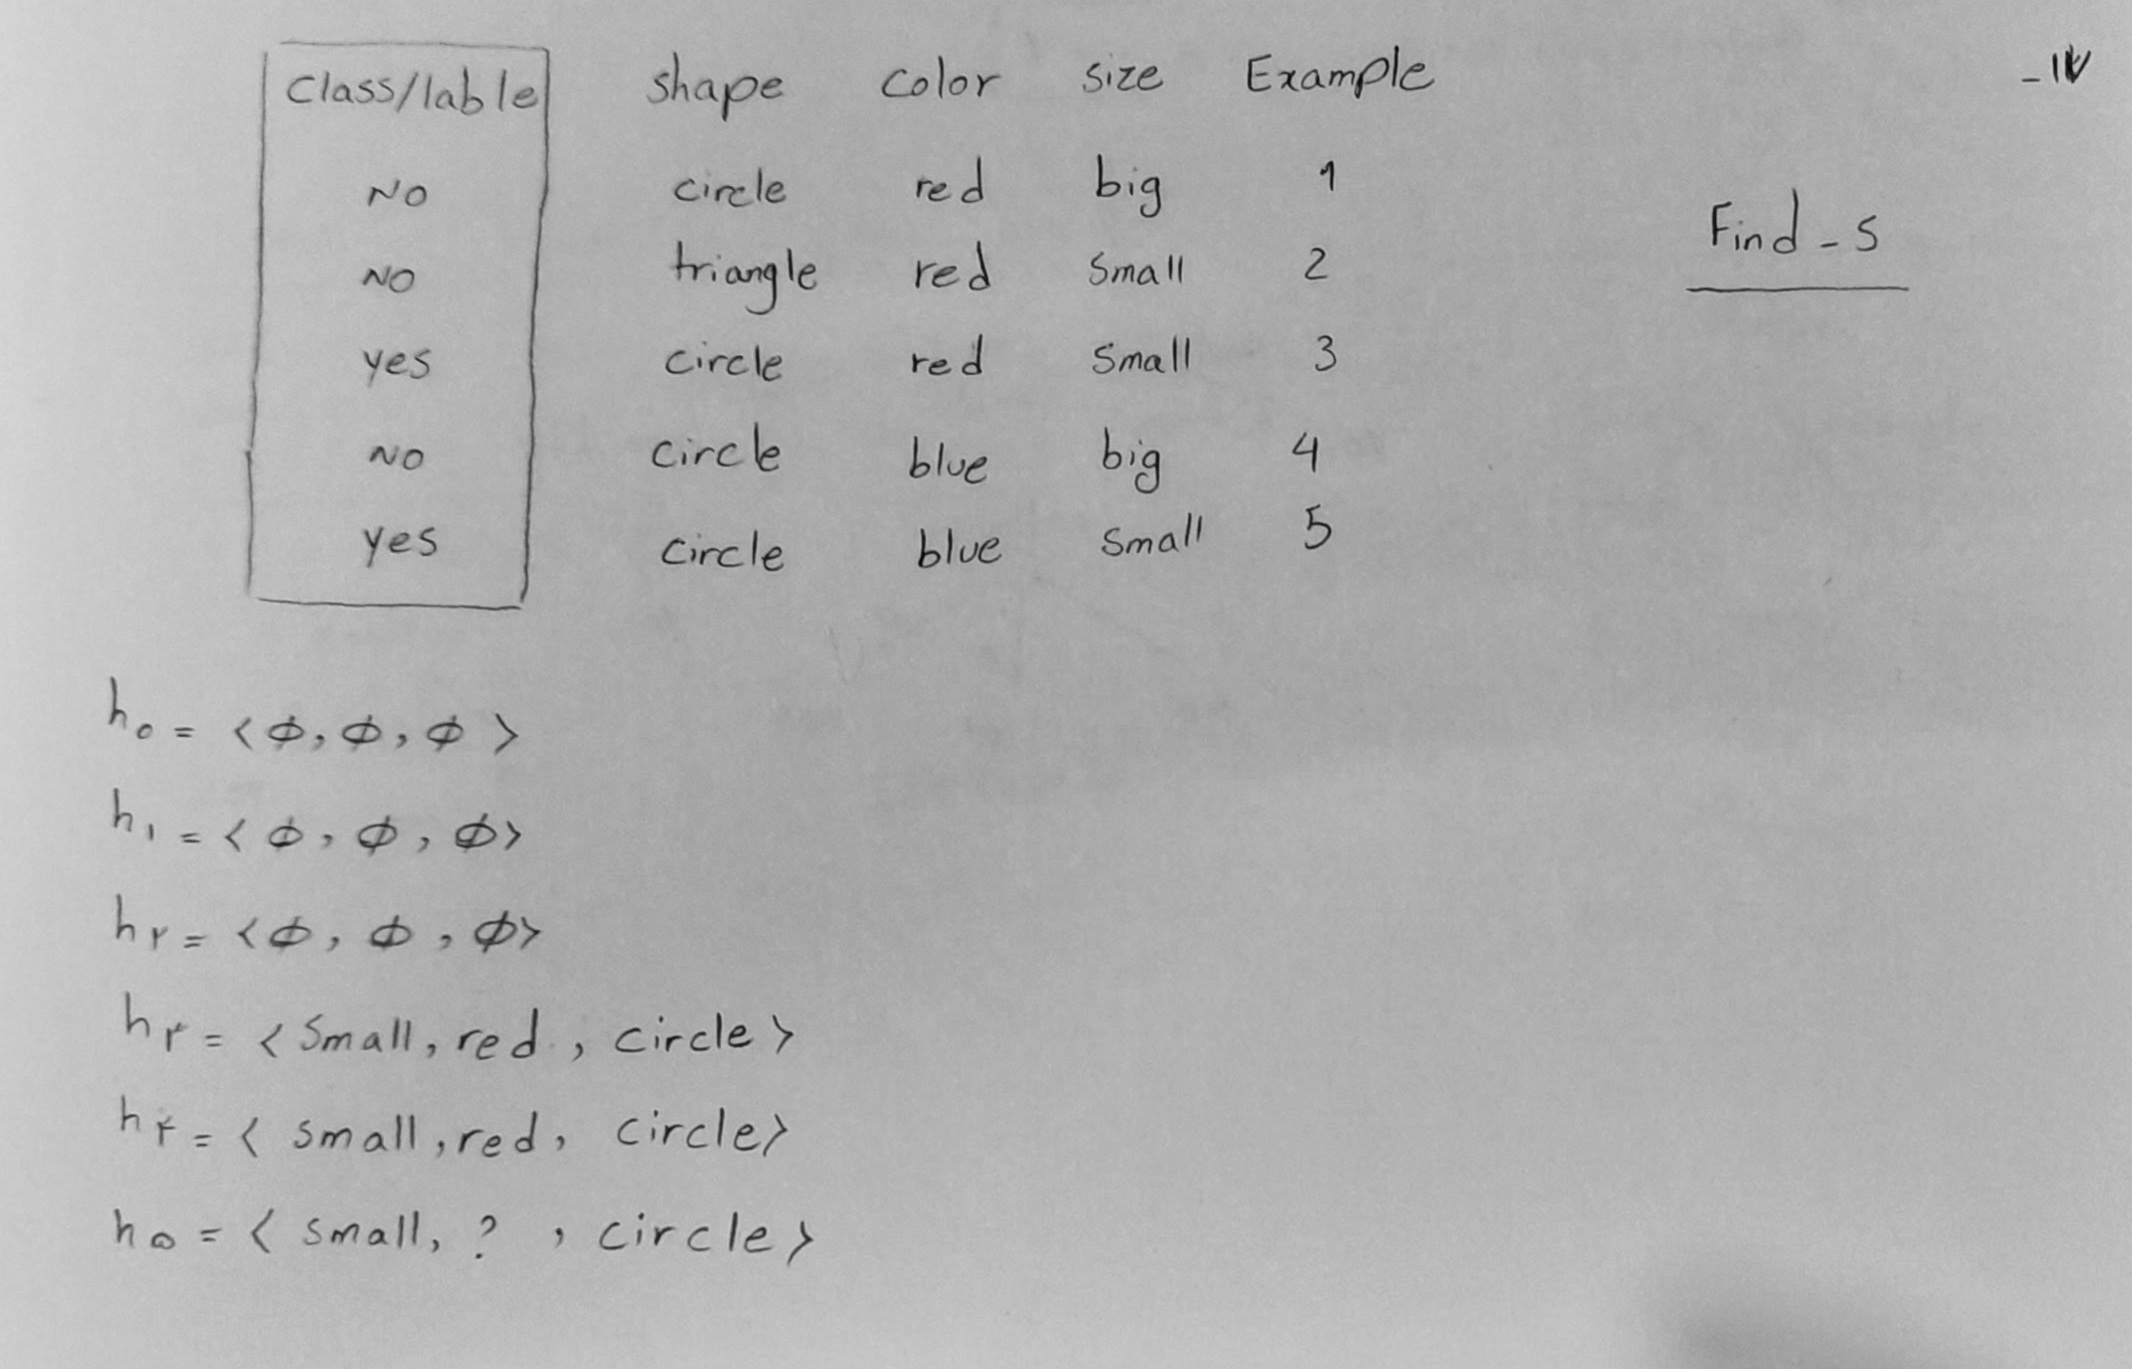 Class/lable shape color size Example
NO circle red big 1
NO triangle red small 2
yes circle red small 3
NO circle blue big 4
yes circle blue small 5
Find-S
h۰ = <Φ, Φ, Φ>
h۱ = <Φ, Φ, Φ>
h۲ = <Φ, Φ, Φ>
h۳ = <small, red, circle>
h۴ = <small, red, circle>
h۵ = <small, ?, circle>